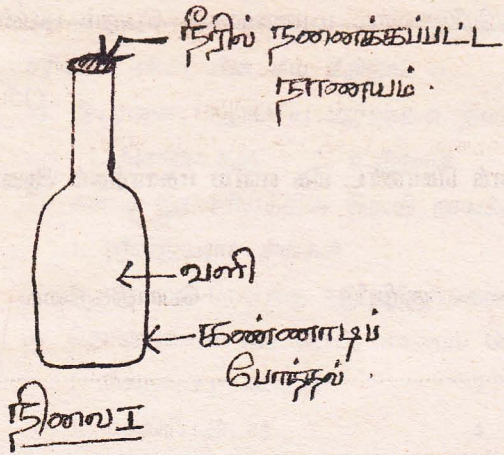 நீரில் நனைக்கப்பட்ட
நாணயம்.
வளி
கண்ணாடிப்
போத்தல்.
நிலை I